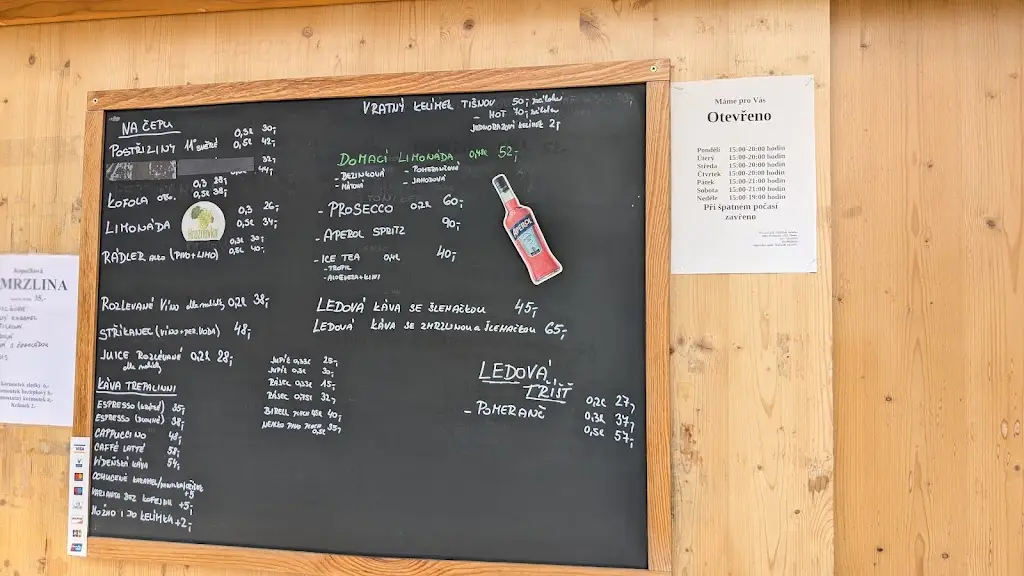 NA ČEPU
POSTŘIŽINY 11° SVĚTLÉ 0,3l 30,-
0,5l 42,-
32,-
44,-
KOFOLA ORG. 0,3 28,-
0,5l 38,-
LIMONÁDA 0,3 26,-
0,5l 34,-
Hroznovka
RÁDLER ALKO (PIVO+LIMO) 0,3l 30,-
0,5l 40,-
ROZLÉVANÉ VÍNO dle nabídky 0,2l 38,-
STŘIKANEC (VÍNO+PER.VODA) 48,-
JUICE ROZLÉVANÉ 0,2l 28,-
dle nabídky
KÁVA TREPALINNI
ESPRESSO 35,-
ESPRESSO 38,-
CAPPUCCINO 48,-
CAFFÈ LATTÉ 58,-
VÍDEŇSKÁ KÁVA 54,-
+5
VARIANTA BEZ KOFEINU +5,-
MOŽNO I DO KELÍMKU +2,-
VRATNÝ KELÍMEK TIŠNOV 50,- záloha
- HOT 70,- záloha
JEDNORÁZOVÝ KELÍMEK 2,-
DOMÁCÍ LIMONÁDA 0,4l 52,-
- BEZINKOVÁ
- MÁTOVÁ
- POMERANČOVÁ
- JAHODOVÁ
- PROSECCO 0,2l 60,-
- APEROL SPRITZ 90,-
- ICE TEA 0,4l 40,-
- TROPIC
- ALOEVERA+KIWI
APEROL
LEDOVÁ KÁVA SE ŠLEHAČKOU 45,-
LEDOVÁ KÁVA SE ZMRZLINOU A ŠLEHAČKOU 65,-
JUPÍK 0,33l 25,-
JUPÍK 0,5l 30,-
15,-
32,-
BIRELL 40,-
NEALKO PIVO 35,-
0,5l
LEDOVÁ
TŘÍŠŤ
- POMERANČ 0,2l 27,-
0,3l 37,-
0,5l 57,-
Máme pro Vás
Otevřeno
Pondělí 15:00-20:00 hodin
Úterý 15:00-20:00 hodin
Středa 15:00-20:00 hodin
Čtvrtek 15:00-20:00 hodin
Pátek 15:00-21:00 hodin
Sobota 15:00-21:00 hodin
Neděle 15:00-19:00 hodin
Při špatném počasí
zavřeno
Kopečková
MRZLINA
35,-
VISA